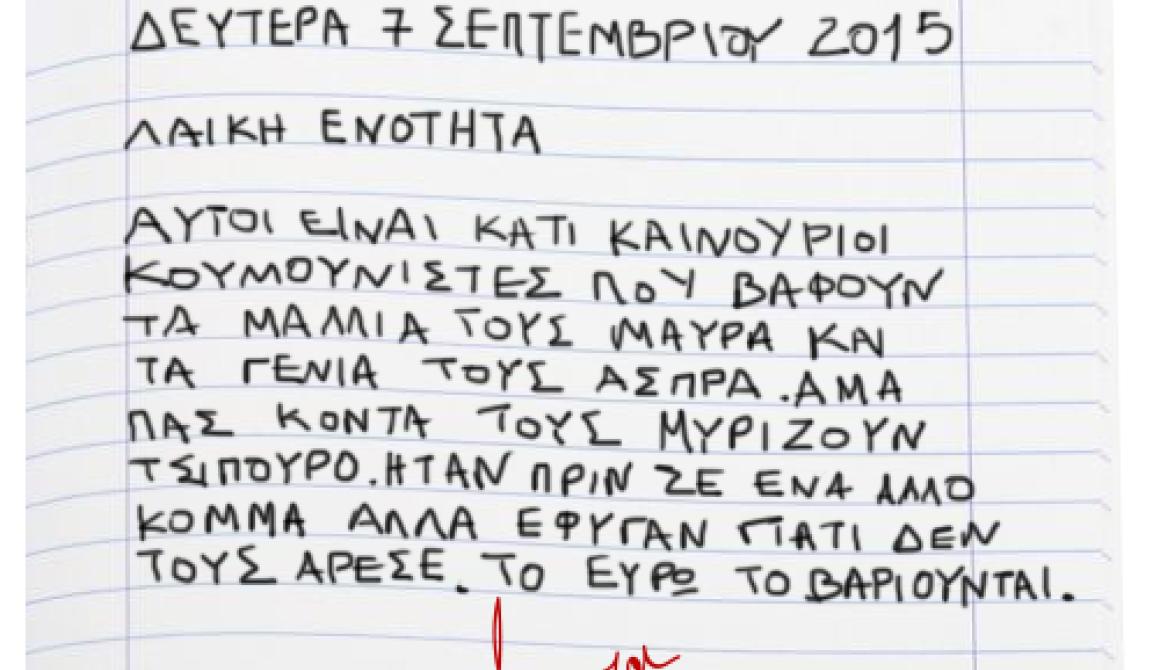 ΔΕΥΤΕΡΑ 7 ΣΕΠΤΕΜΒΡΙΟΥ 2015
ΛΑΙΚΗ ΕΝΟΤΗΤΑ
ΑΥΤΟΙ ΕΙΝΑΙ ΚΑΤΙ ΚΑΙΝΟΥΡΙΟΙ
ΚΟΥΜΟΥΝΙΣΤΕΣ ΠΟΥ ΒΑΦΟΥΝ
ΤΑ ΜΑΛΛΙΑ ΤΟΥΣ ΜΑΥΡΑ ΚΑΙ
ΤΑ ΓΕΝΙΑ ΤΟΥΣ ΑΣΠΡΑ .ΑΜΑ
ΠΑΣ ΚΟΝΤΑ ΤΟΥΣ ΜΥΡΙΖΟΥΝ
ΤΣΙΠΟΥΡΟ.ΗΤΑΝ ΠΡΙΝ ΣΕ ΕΝΑ ΑΛΛΟ
ΚΟΜΜΑ ΑΛΛΑ ΕΦΥΓΑΝ ΓΙΑΤΙ ΔΕΝ
ΤΟΥΣ ΑΡΕΣΕ. ΤΟ ΕΥΡΩ ΤΟ ΒΑΡΙΟΥΝΤΑΙ.